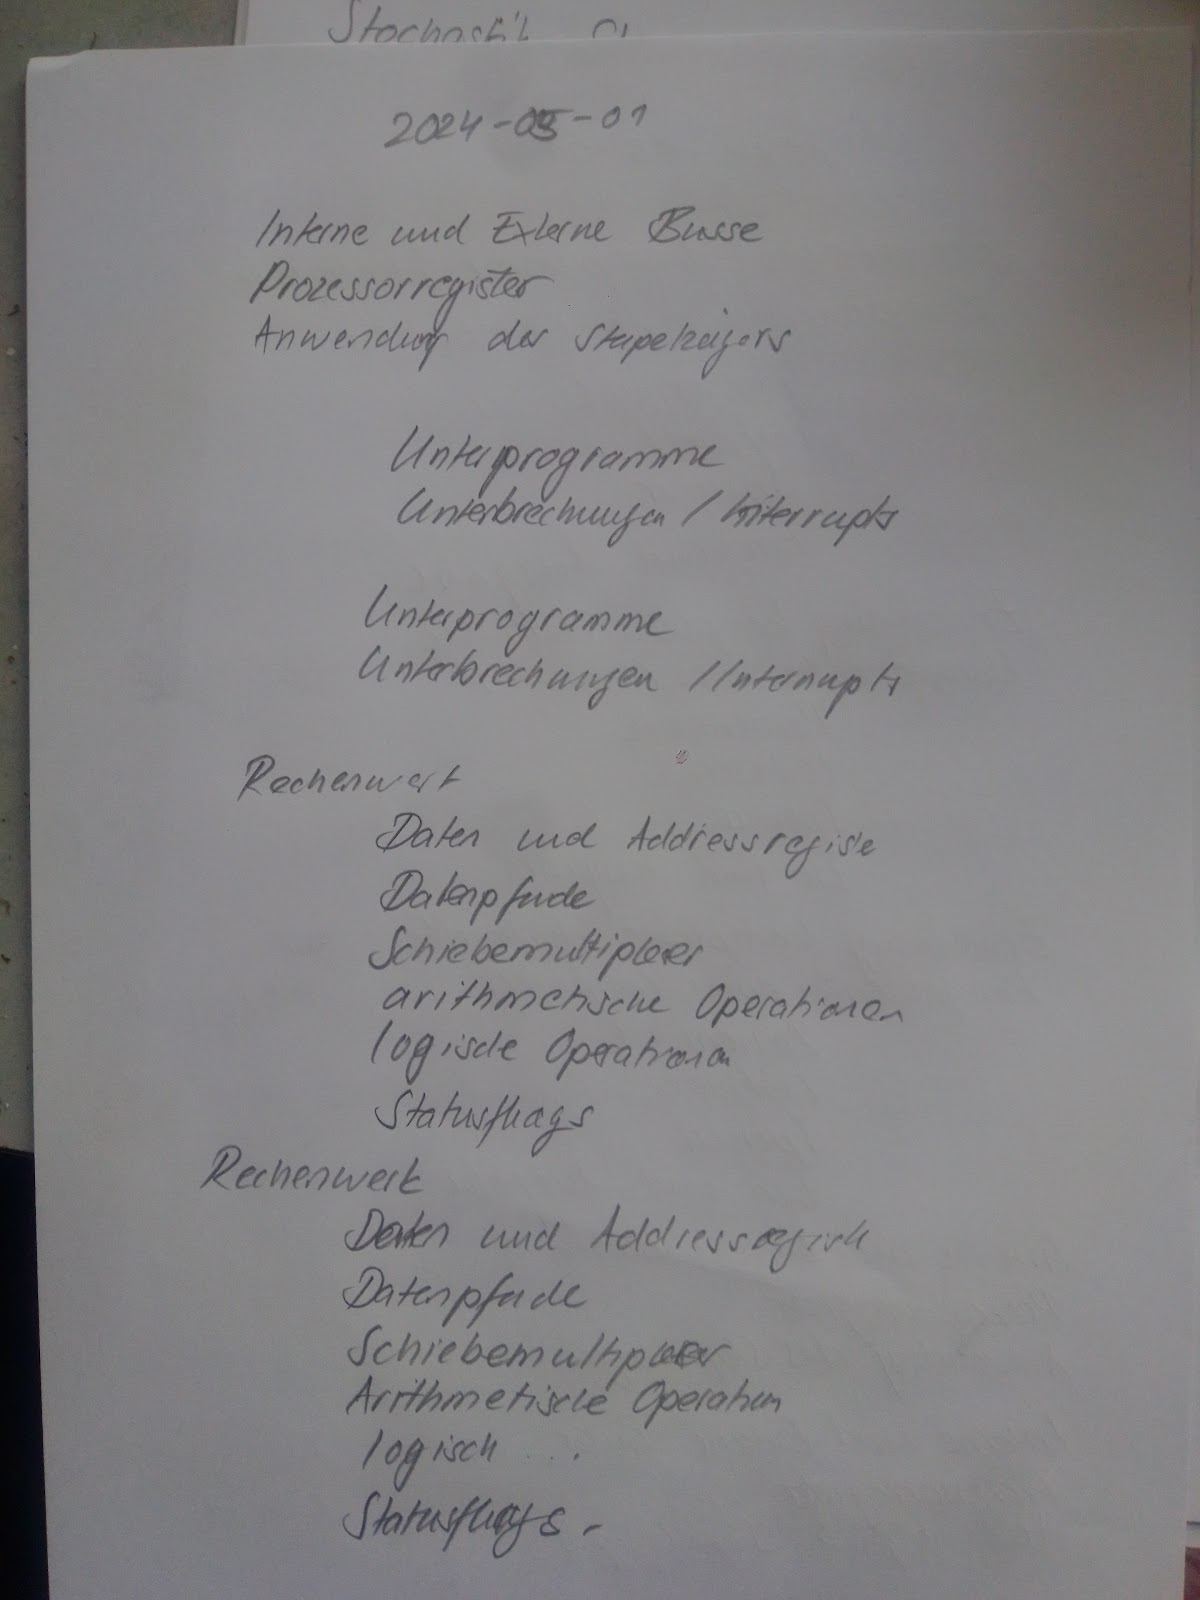 Stochastik
2024-05-01
Interne und Externe Busse
Prozessorregister
Anwendung des Stapelzeigers
Unterprogramme
Unterbrechungen / Interrupts
Unterprogramme
Unterbrechungen / Interrupts
Rechenwerk
Daten und Addressregiste
Datenpfade
Schiebemultiplexer
arithmetische Operationen
logische Operationen
Statusflags
Rechenwerk
Daten und Addressregiste
Datenpfade
Schiebemultiplexer
Arithmetische Operation
logisch . . .
Statusflags -